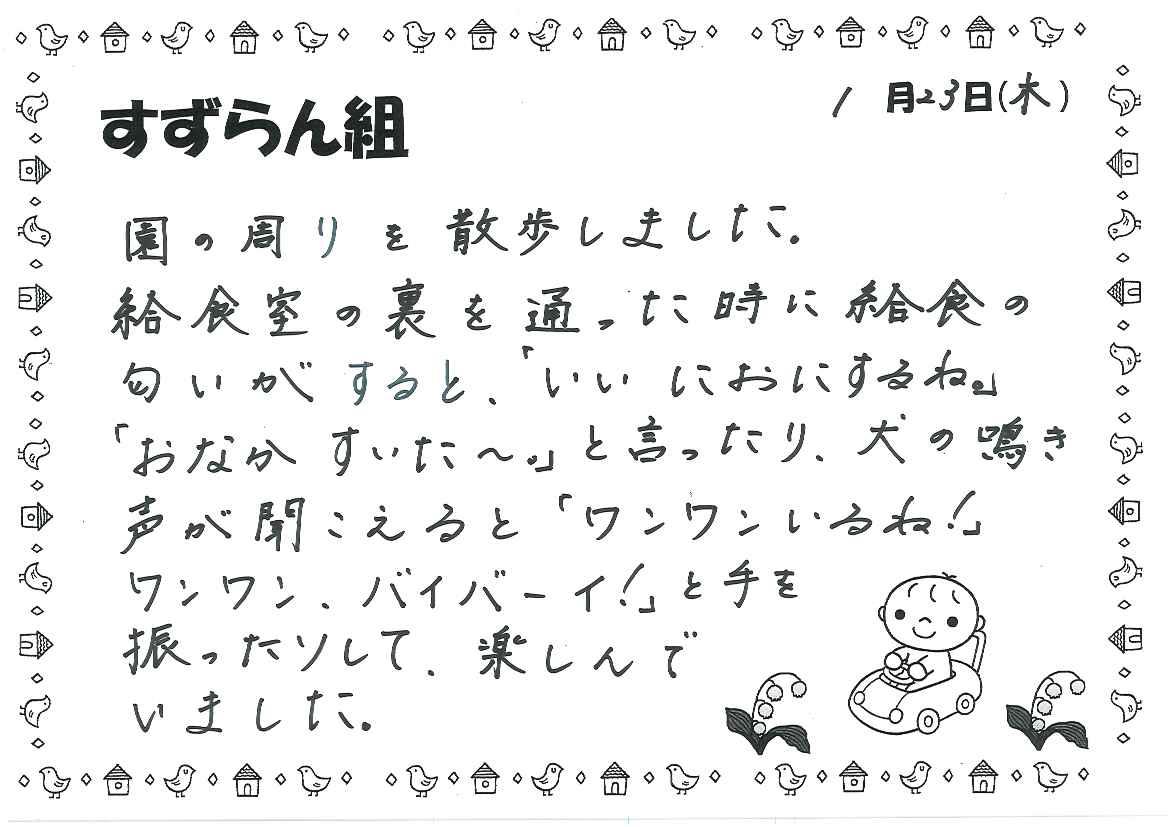 すずらん組
1月23日(木)
園の周りを散歩しました。
給食室の裏を通った時に給食の
匂いがすると、「いいにおにするね。」
「おなかすいた〜。」と言ったり、犬の鳴き
声が聞こえると「ワンワンいるね!」
ワンワン、バイバーイ!」と手を
振ったりして、楽しんで
いました。